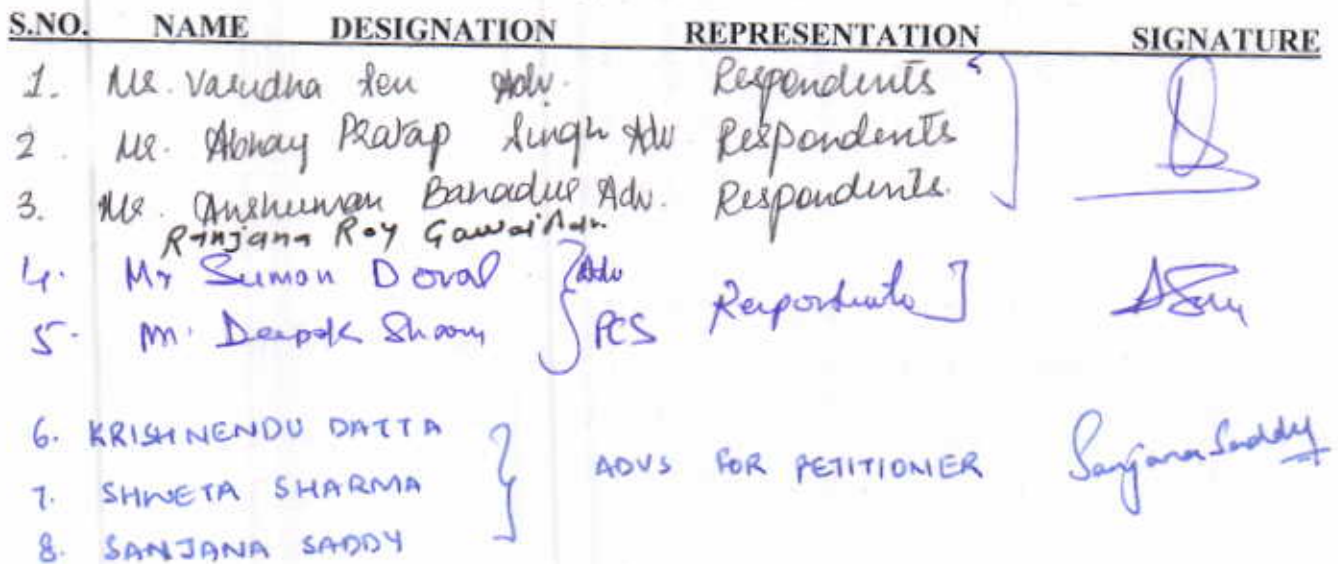 S.NO. NAME DESIGNATION REPRESENTATION SIGNATURE
1. Ms. Varudha Sen Adv. Respondents
2. Mr. Abhay Pratap Singh Adv Respondents
3. Mr. Anshuman Bahadur Adv. Respondents.
Ranjana Roy Gawai Adv.
4. Mr Suman Doval Adv
5. Mr. Deepak Sharma PCS Respondents
6. KRISHNENDU DATTA
7. SHWETA SHARMA ADVS FOR PETITIONER Sanjana Saddy
8. SANJANA SADDY